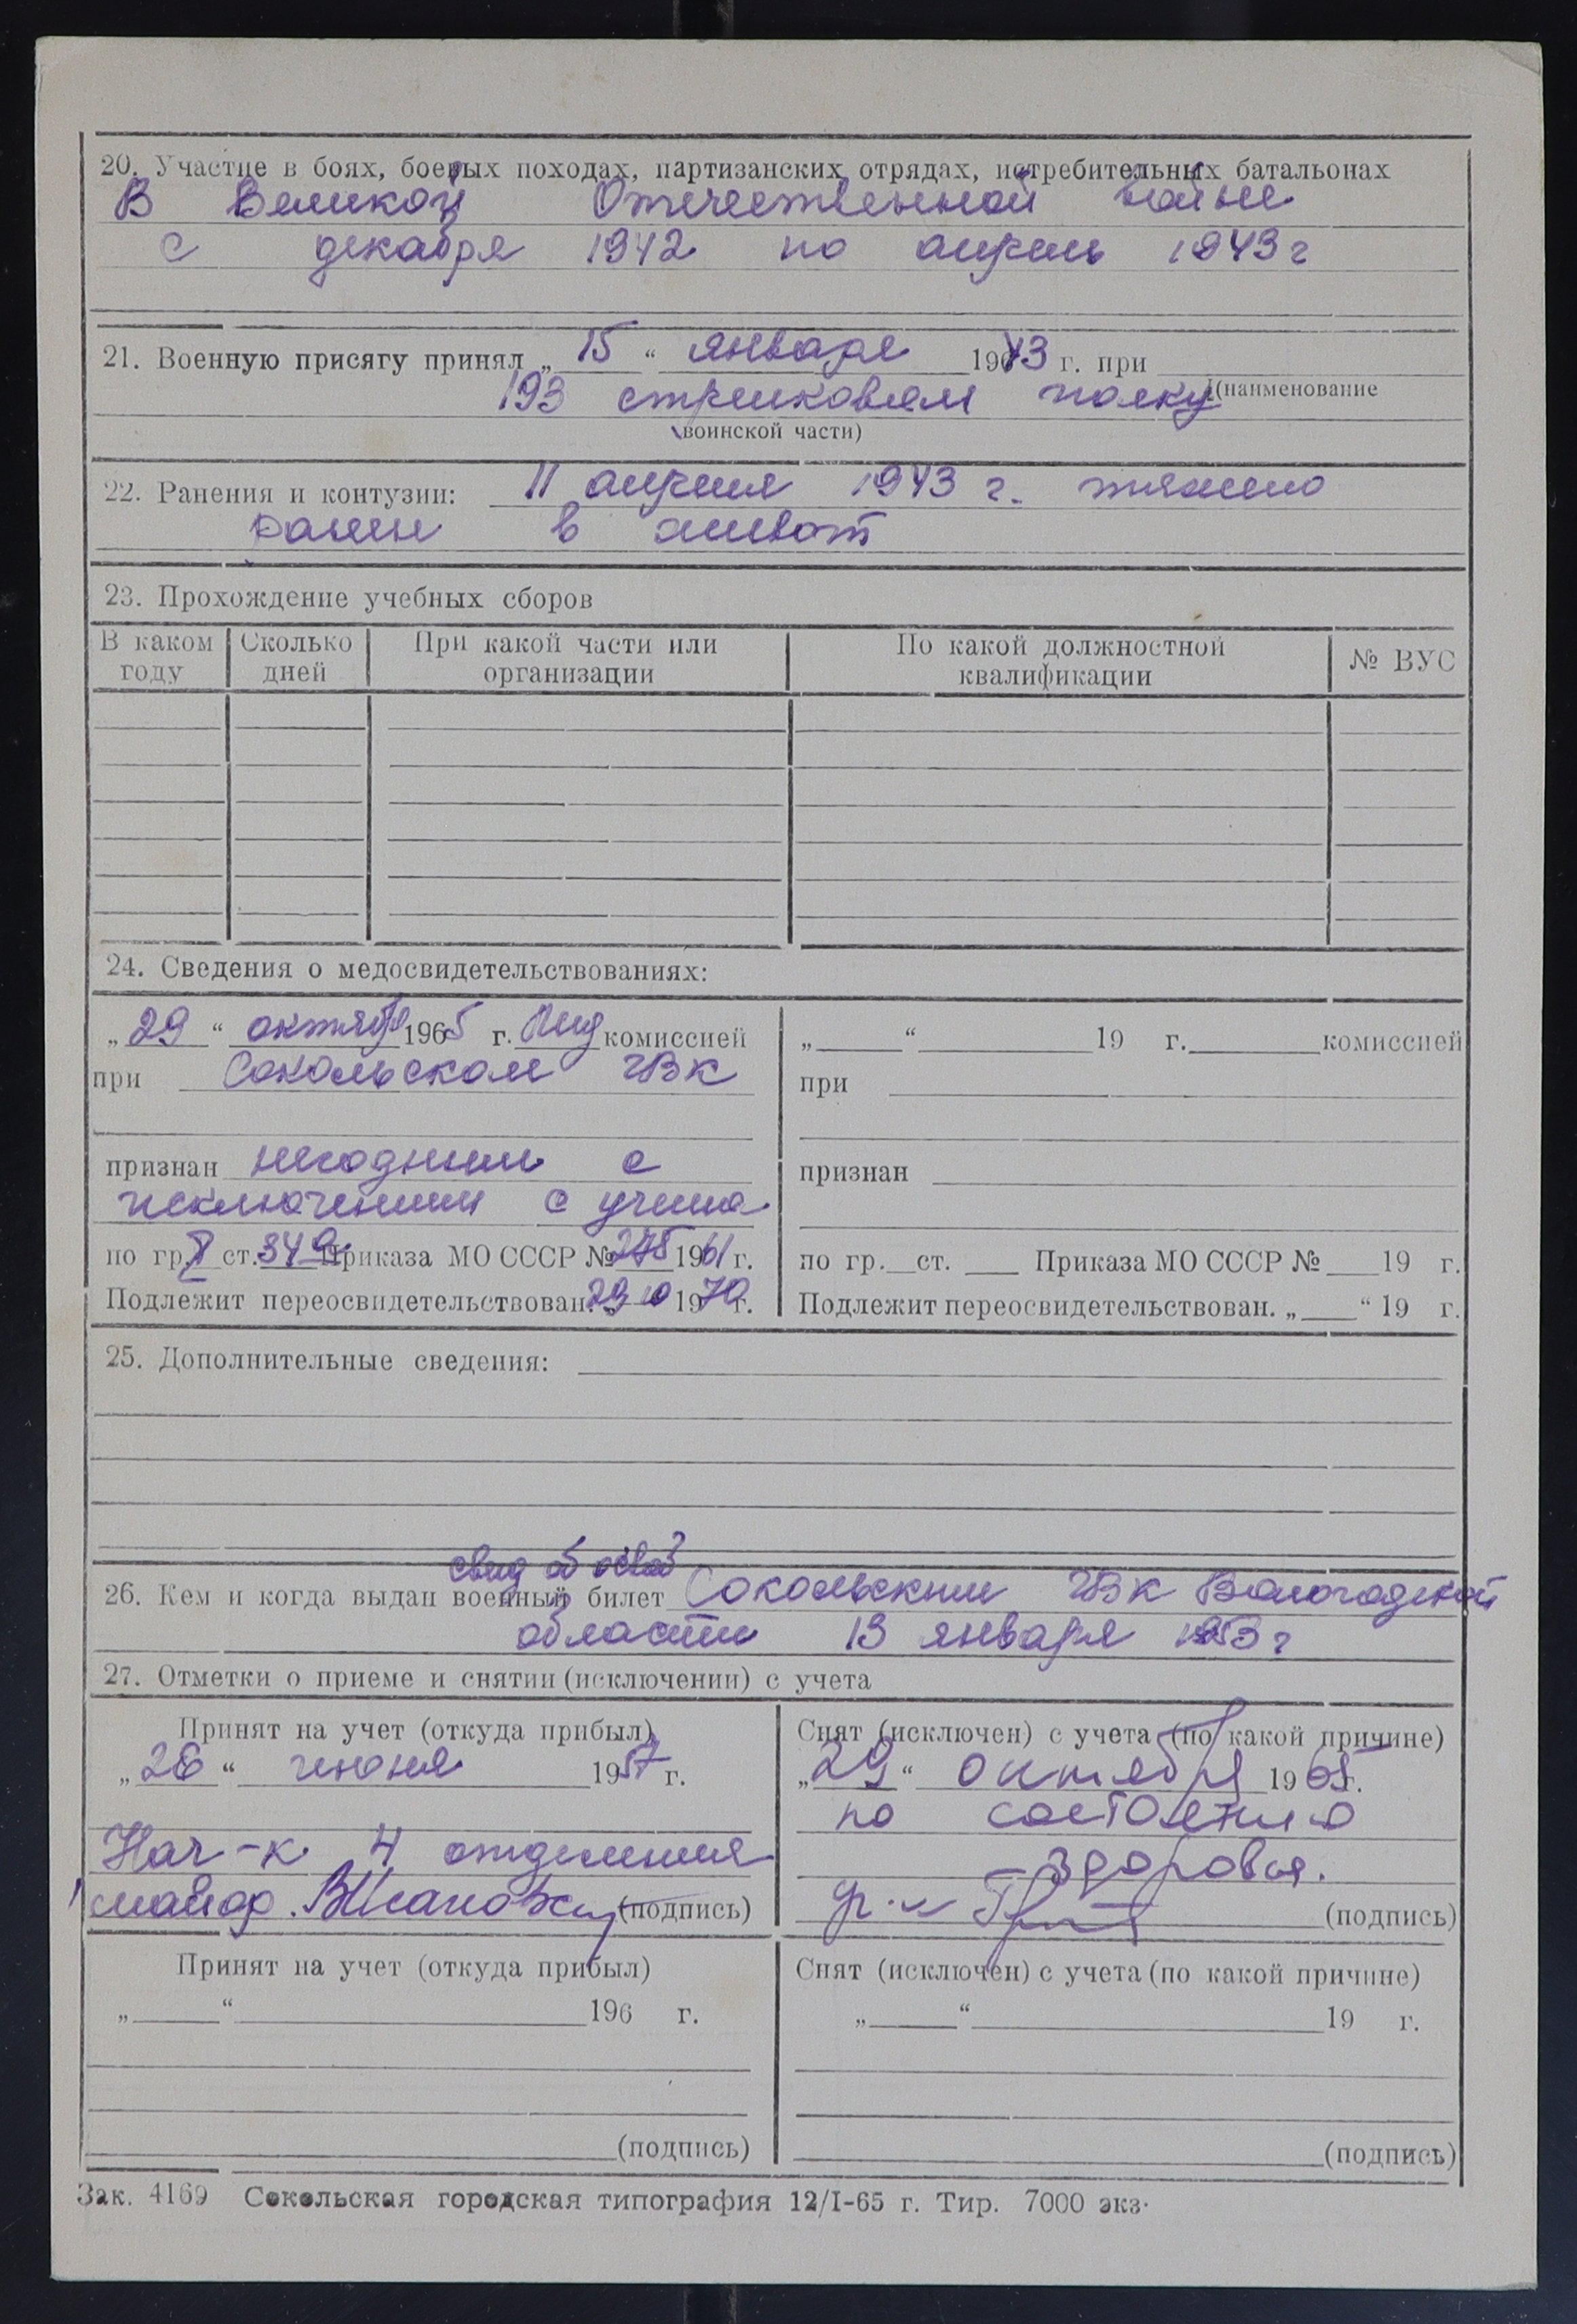 20. Участие в боях, боевых походах, партизанских отрядах, истребительных батальонах
В Великой Отечественной войне
с декабря 1942 по апрель 1943 г
21. Военную присягу принял „ 15 “ января 1943 г. при
193 стрелковом полку (наименование
воинской части)
22. Ранения и контузии: 11 апреля 1943 г. тяжело
ранен в живот
23. Прохождение учебных сборов
В каком году Сколько дней При какой части или организации По какой должностной квалификации № ВУС
24. Сведения о медосвидетельствованиях:
„ 29 “ октября 1965 г. Мед комиссией
при Сокольском ГВК
признан негодным с
исключением с учета
по гр. I ст. 34а Приказа МО СССР № 275 1961 г.
Подлежит переосвидетельствован. „ 29 10 1970 г.
„ “ 19 г. комиссией
при
признан
по гр. ст. Приказа МО СССР № 19 г.
Подлежит переосвидетельствован. „ “ 19 г.
25. Дополнительные сведения:
свид об освоб
26. Кем и когда выдан военный билет Сокольским ГВК Вологодской
области 13 января 1953 г
27. Отметки о приеме и снятии (исключении) с учета
Принят на учет (откуда прибыл)
„ 26 “ июня 1957 г.
Нач-к 4 отделения
майор. (подпись)
Снят (исключен) с учета (по какой причине)
„ 29 “ октября 1965 г.
по состоянию
здоровья.
(подпись)
Принят на учет (откуда прибыл)
„ “ 196 г.
(подпись)
Снят (исключен) с учета (по какой причине)
„ “ 19 г.
(подпись)
Зак. 4169 Сокольская городская типография 12/I-65 г. Тир. 7000 экз.